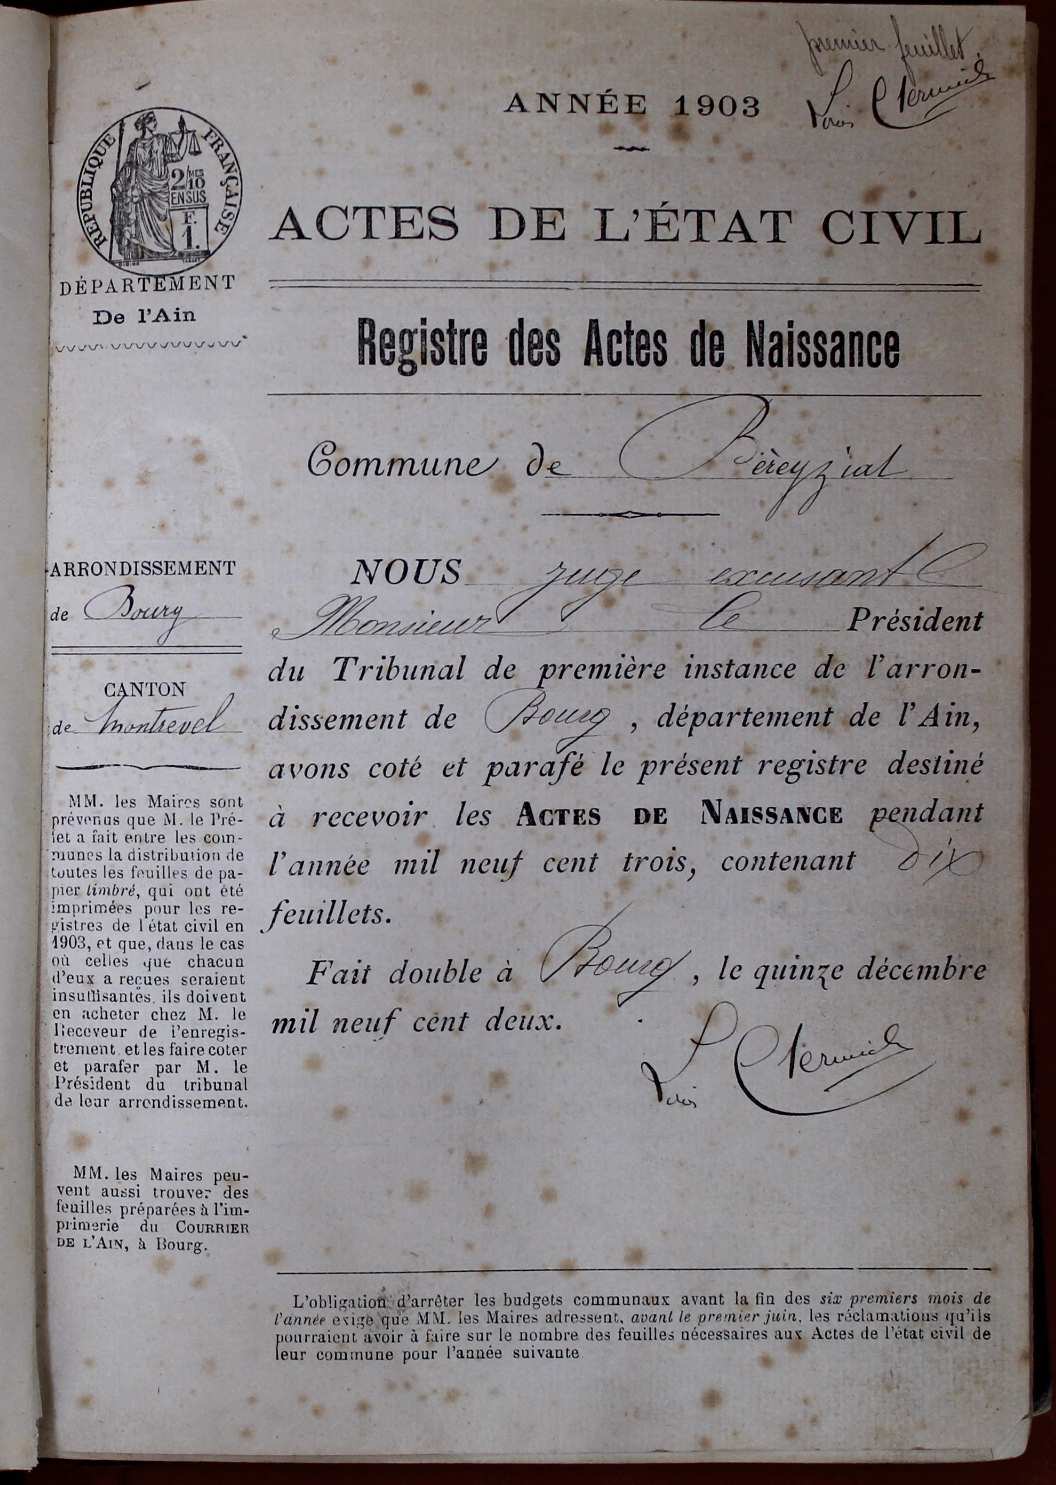 premier feuillet
ANNÉE 1903
RÉPUBLIQUE FRANÇAISE
2/10 MES
EN SUS
F.
1.
ACTES DE L'ÉTAT CIVIL
DÉPARTEMENT
De l'Ain
Registre des Actes de Naissance
Commune de Béreyziat
ARRONDISSEMENT
de Bourg
CANTON
de Montrevel
MM. les Maires sont
prévenus que M. le Pré-
fet a fait entre les com-
munes la distribution de
toutes les feuilles de pa-
pier timbré, qui ont été
imprimées pour les re-
gistres de l'état civil en
1903, et que, dans le cas
où celles que chacun
d'eux a reçues seraient
insuffisantes, ils doivent
en acheter chez M. le
Receveur de l'enregis-
trement et les faire coter
et parafer par M. le
Président du tribunal
de leur arrondissement.
MM. les Maires peu-
vent aussi trouver des
feuilles préparées à l'im-
primerie du COURRIER
DE L'AIN, à Bourg.
NOUS juge excusant
Monsieur le Président
du Tribunal de première instance de l'arron-
dissement de Bourg, département de l'Ain,
avons coté et parafé le présent registre destiné
à recevoir les ACTES DE NAISSANCE pendant
l'année mil neuf cent trois, contenant dix
feuillets.
Fait double à Bourg, le quinze décembre
mil neuf cent deux.
L'obligation d'arrêter les budgets communaux avant la fin des six premiers mois de
l'année exige que MM. les Maires adressent, avant le premier juin, les réclamations qu'ils
pourraient avoir à faire sur le nombre des feuilles nécessaires aux Actes de l'état civil de
leur commune pour l'année suivante